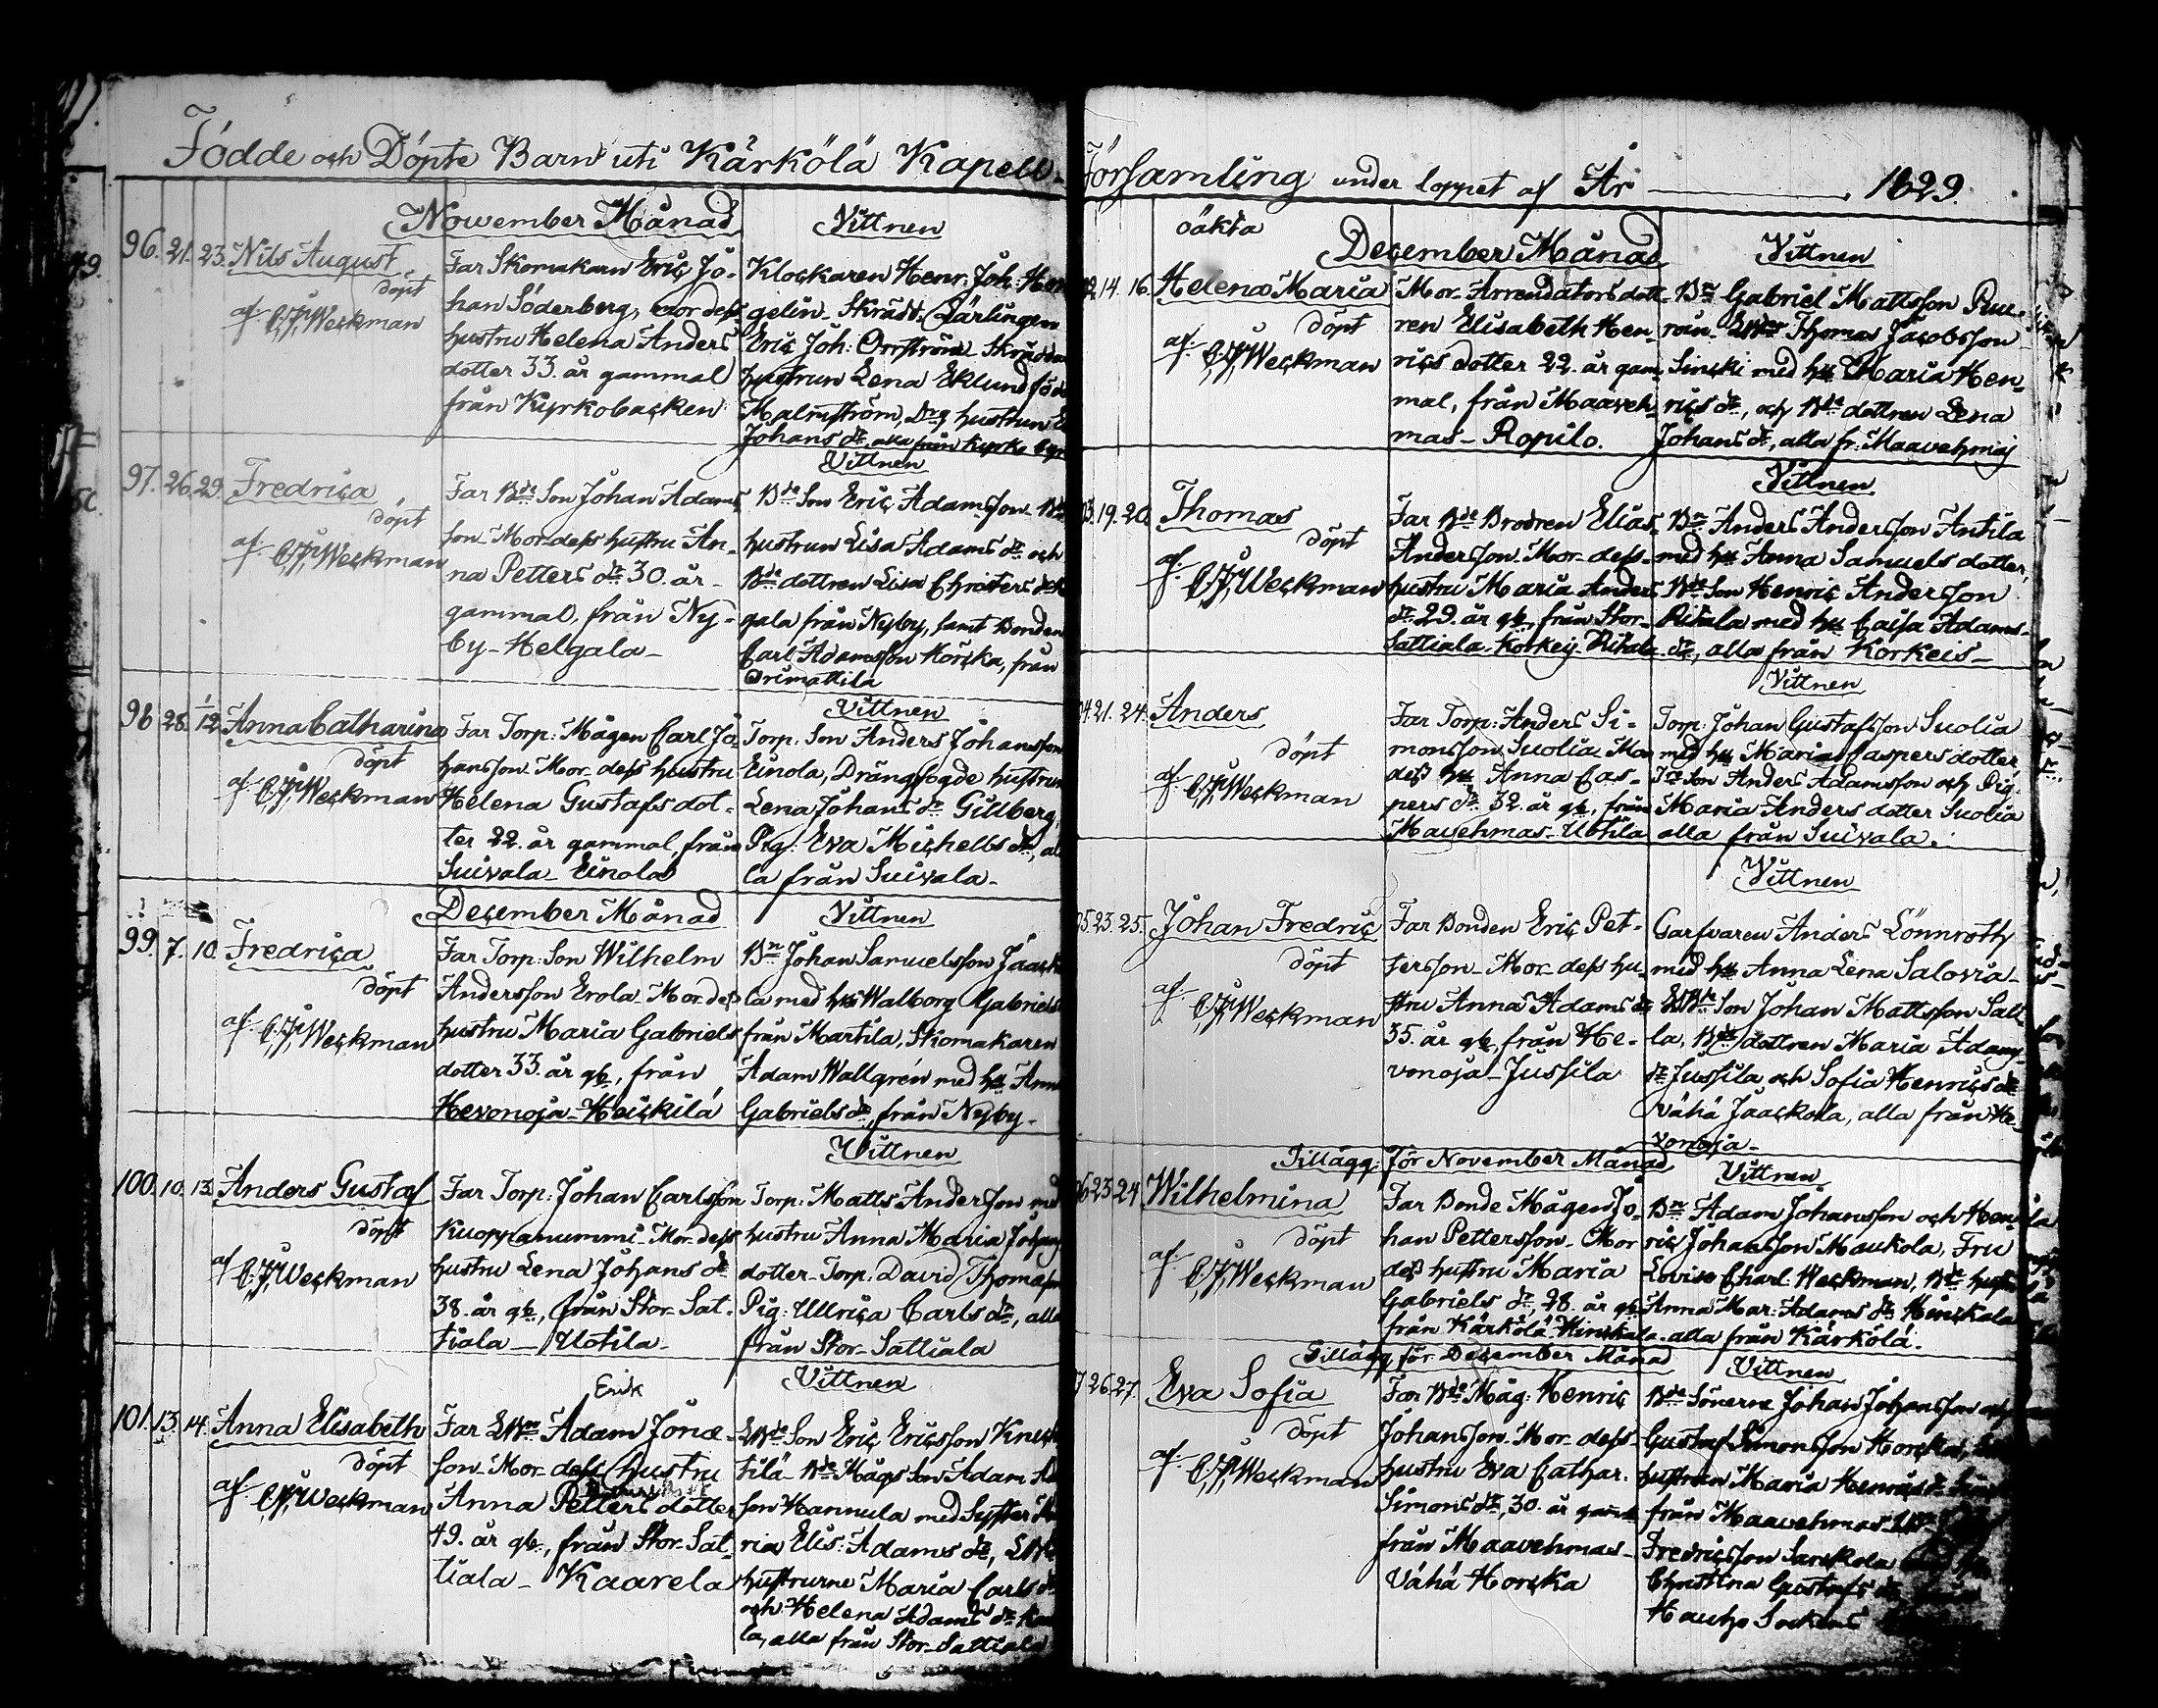 Födde och Döpte Barn uti Kärkölä Kapell-
November Månad
Vittnen
96. 21. 23. Nils August
döpt
af C. J. Weckman
Far Skomakarn Eric Jo-
han Söderberg, Mor dess
hustru Helena Anders
dotter 33. år gammal
från Kyrkobacken
Klockaren Henr. Joh. Hen
gelin- Skrädd. Lärlingen
Eric Joh: Orrström- Skrädda
hustrun Lena Eklund föd
Malmström, Dng hustrun
Johans dr. alla från Kyrko byn
Vittnen
97. 26. 29. Fredrica
döpt
af C. J. Weckman
Far Bde Son Johan Adams
son- Mor dess hustru An-
na Petters dr 30. år-
gammal, från Ny-
by- Helgala-
Bde Son Eric Adamsson- Bde
hustrun Lisa Adams dr och
Bde dottren Lisa Christers dr
gala från Nyby, samt Bonden
Carl Adamsson Horcka, från
Orimattila
Vittnen
98 28. 1/12 Anna Catharina
döpt
af C. J. Weckman
Far Torp: Mågen Carl Jo-
hansson- Mor dess hustru
Helena Gustafs dot-
ter 22. år gammal, från
Suivala- Einola
Torp: Son Anders Johansson
Einola, Drängfogde hustrun
Lena Johans dr Gillberg,
Pig: Eva Michells dr, al
la från Suivala-
December Månad
Vittnen
99. 7. 10. Fredrica
döpt
af C. J. Weckman
Far Torp: Son Wilhelm
Andersson Erola- Mor dess
hustru Maria Gabriels
dotter 33. år gl, från
Hevonoja- Heickilä
Bn Johan Samuelsson Jaack
la med hu Walborg Gabriels
från Martila, Skomakaren
Adam Wallgrén med hu Anna
Gabriels dr, från Nyby-
Vittnen
100. 10. 13. Anders Gustaf
döpt
af C. J. Weckman
Far Torp: Johan Carlsson
Kuoppanummi- Mor dess
hustru Lena Johans dr
38. år gl, från Stor- Sat-
tiala- Uotila-
Torp: Matts Andersson med
hustru Anna Maria Johans
dotter- Torp. David Thomasson
Pig: Ullrica Carls dr, alla
från Stor- Sattiala
Vittnen
101. 13. 14. Anna Elisabeth
döpt
af C. J. Weckman
Erik
Far Adam Jöra-
son- Mor dess hustru
Anna Petters dotter
49. år gl, från Stor- Sat-
tiala- Kaarela
Son Eric Ericsson
tilä- Bde Mågs Son Adam
son Hannula med Syster
ria Elis: Adams dr,
hustrurne Maria Carls dr
och Helena Adams dr
la, alla från Stor- Sattiala
Församling under loppet af År 1829.
oäkta
December Månad
Vittnen
14. 16. Helena Maria
döpt
af C. J. Weckman
Mor Arrendators dott-
ren Elisabeth Hen-
rics dotter 22. år gam-
mal, från Maaveh-
mas- Ropilo.
Bn Gabriel Mattsson
Thomas Jacobsson
Sincki med hu Maria Hen-
rics dr, och Bde dottren Lena
Johans dr, alla fr: Maavehmaj
Vittnen
19. 20. Thomas
döpt
af C. J. Weckman
Far Bde Brodren Elias
Andersson- Mor dess-
hustru Maria Anders
dr 29. år gl, från Stor-
Sattiala- Korkeij Rihala
Bn Anders Andersson Antila
med hu Anna Samuels dotter,
Bde Son Henric Andersson
Rihala med hu Caisa Adams-
dr, alla från Korkeis-
Vittnen
21. 24. Anders
döpt
af C. J. Weckman
Far Torp: Anders Si-
monsson Suolia Mor
dess hu Anna Cas-
pers dr 32. år gl, från
Mavehmas- Uotila
Torp: Johan Gustafsson Suolia
med hu Maria Caspers dotter
Son Anders Adamsson och Pig.
Maria Anders dotter Suolia
alla från Suivala.
Vittnen
23. 25. Johan Fredric
döpt
af C. J. Weckman
Far Bonden Eric Pet-
tersson- Mor dess hu-
stru Anna Adams dr
35. år gl, från He-
vonoja- Jussila
Garfvaren Anders Lönnroth
med hu Anna Lena Salovia-
Son Johan Mattsson
la, Bde dottren Maria Adams
dr Jussila, och Sofia Henrics dr
Vähä Jaackola, alla från He-
vonoja-
Tillägg: för November Månad
Vittnen
23 24 Wilhelmina
döpt
af C. J. Weckman
Far Bonde Mågen Jo-
han Pettersson- Mor
dess hustru Maria
Gabriels dr, 28. år gl
från Kärkölä- Hinckala
Bn Adam Johansson och Hen
ric Johansson Maukola, Fru
Lovisa Charl. Weckman, Bde hustru
Anna Mar: Adams dr Hinckala
alla från Kärkölä.
Tillägg för December Månad
Vittnen
26. 27. Eva Sofia
döpt
af C. J. Weckman
Far Bde Måg: Henric
Johansson- Mor dess-
hustru Eva Cathar.
Simons dr, 30. år gaml
från Maavehmas-
Vähä Horcka
Bde Sönerne Johan Johansson och
Gustaf Simonsson Horcka,
hustrun Maria Henrics dr
från Maavehmas-
Fredricsson
Christina Gustafs dr
Hauho Socken